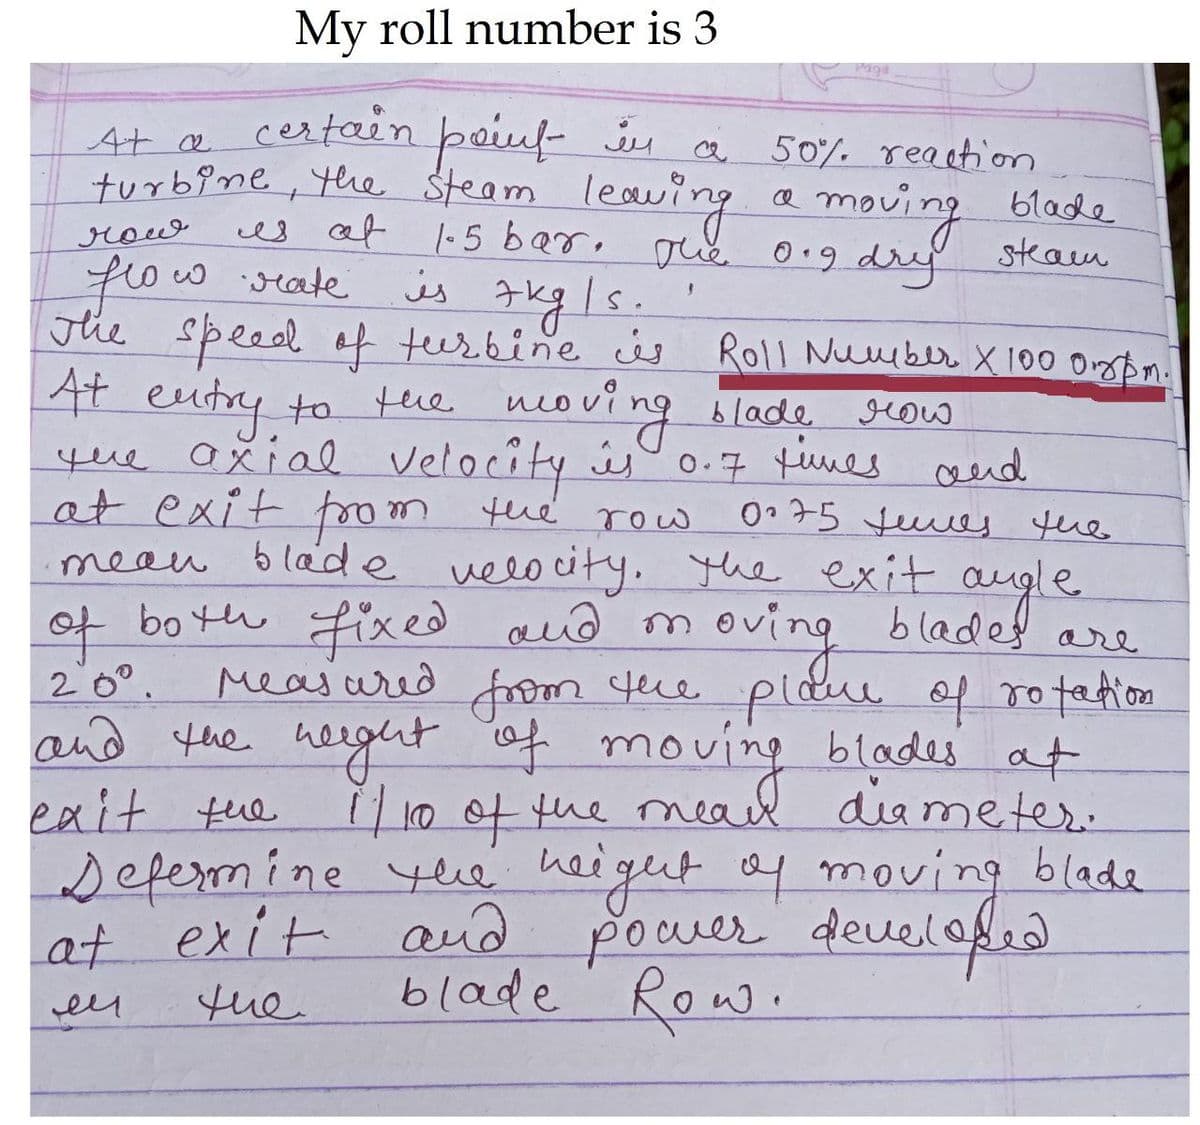 My roll number is 3
Page
At a certain point in a 50% reaction
turbine, the steam leaving a moving blade
row is at 1.5 bar. The 0.9 dry steam
flow rate is 7kg/s.
The speed of turbine is Roll Number X 100 0 rpm.
At entry to the moving blade row
the axial velocity is 0.7 times and
at exit from the row 0.75 times the
mean blade velocity. The exit angle
of both fixed and moving blades are
20°. Measured from the plane of rotation
and the height of moving blades at
exit the 1/10 of the mean diameter.
Determine the height of moving blade
at exit and power developed
in the blade Row.